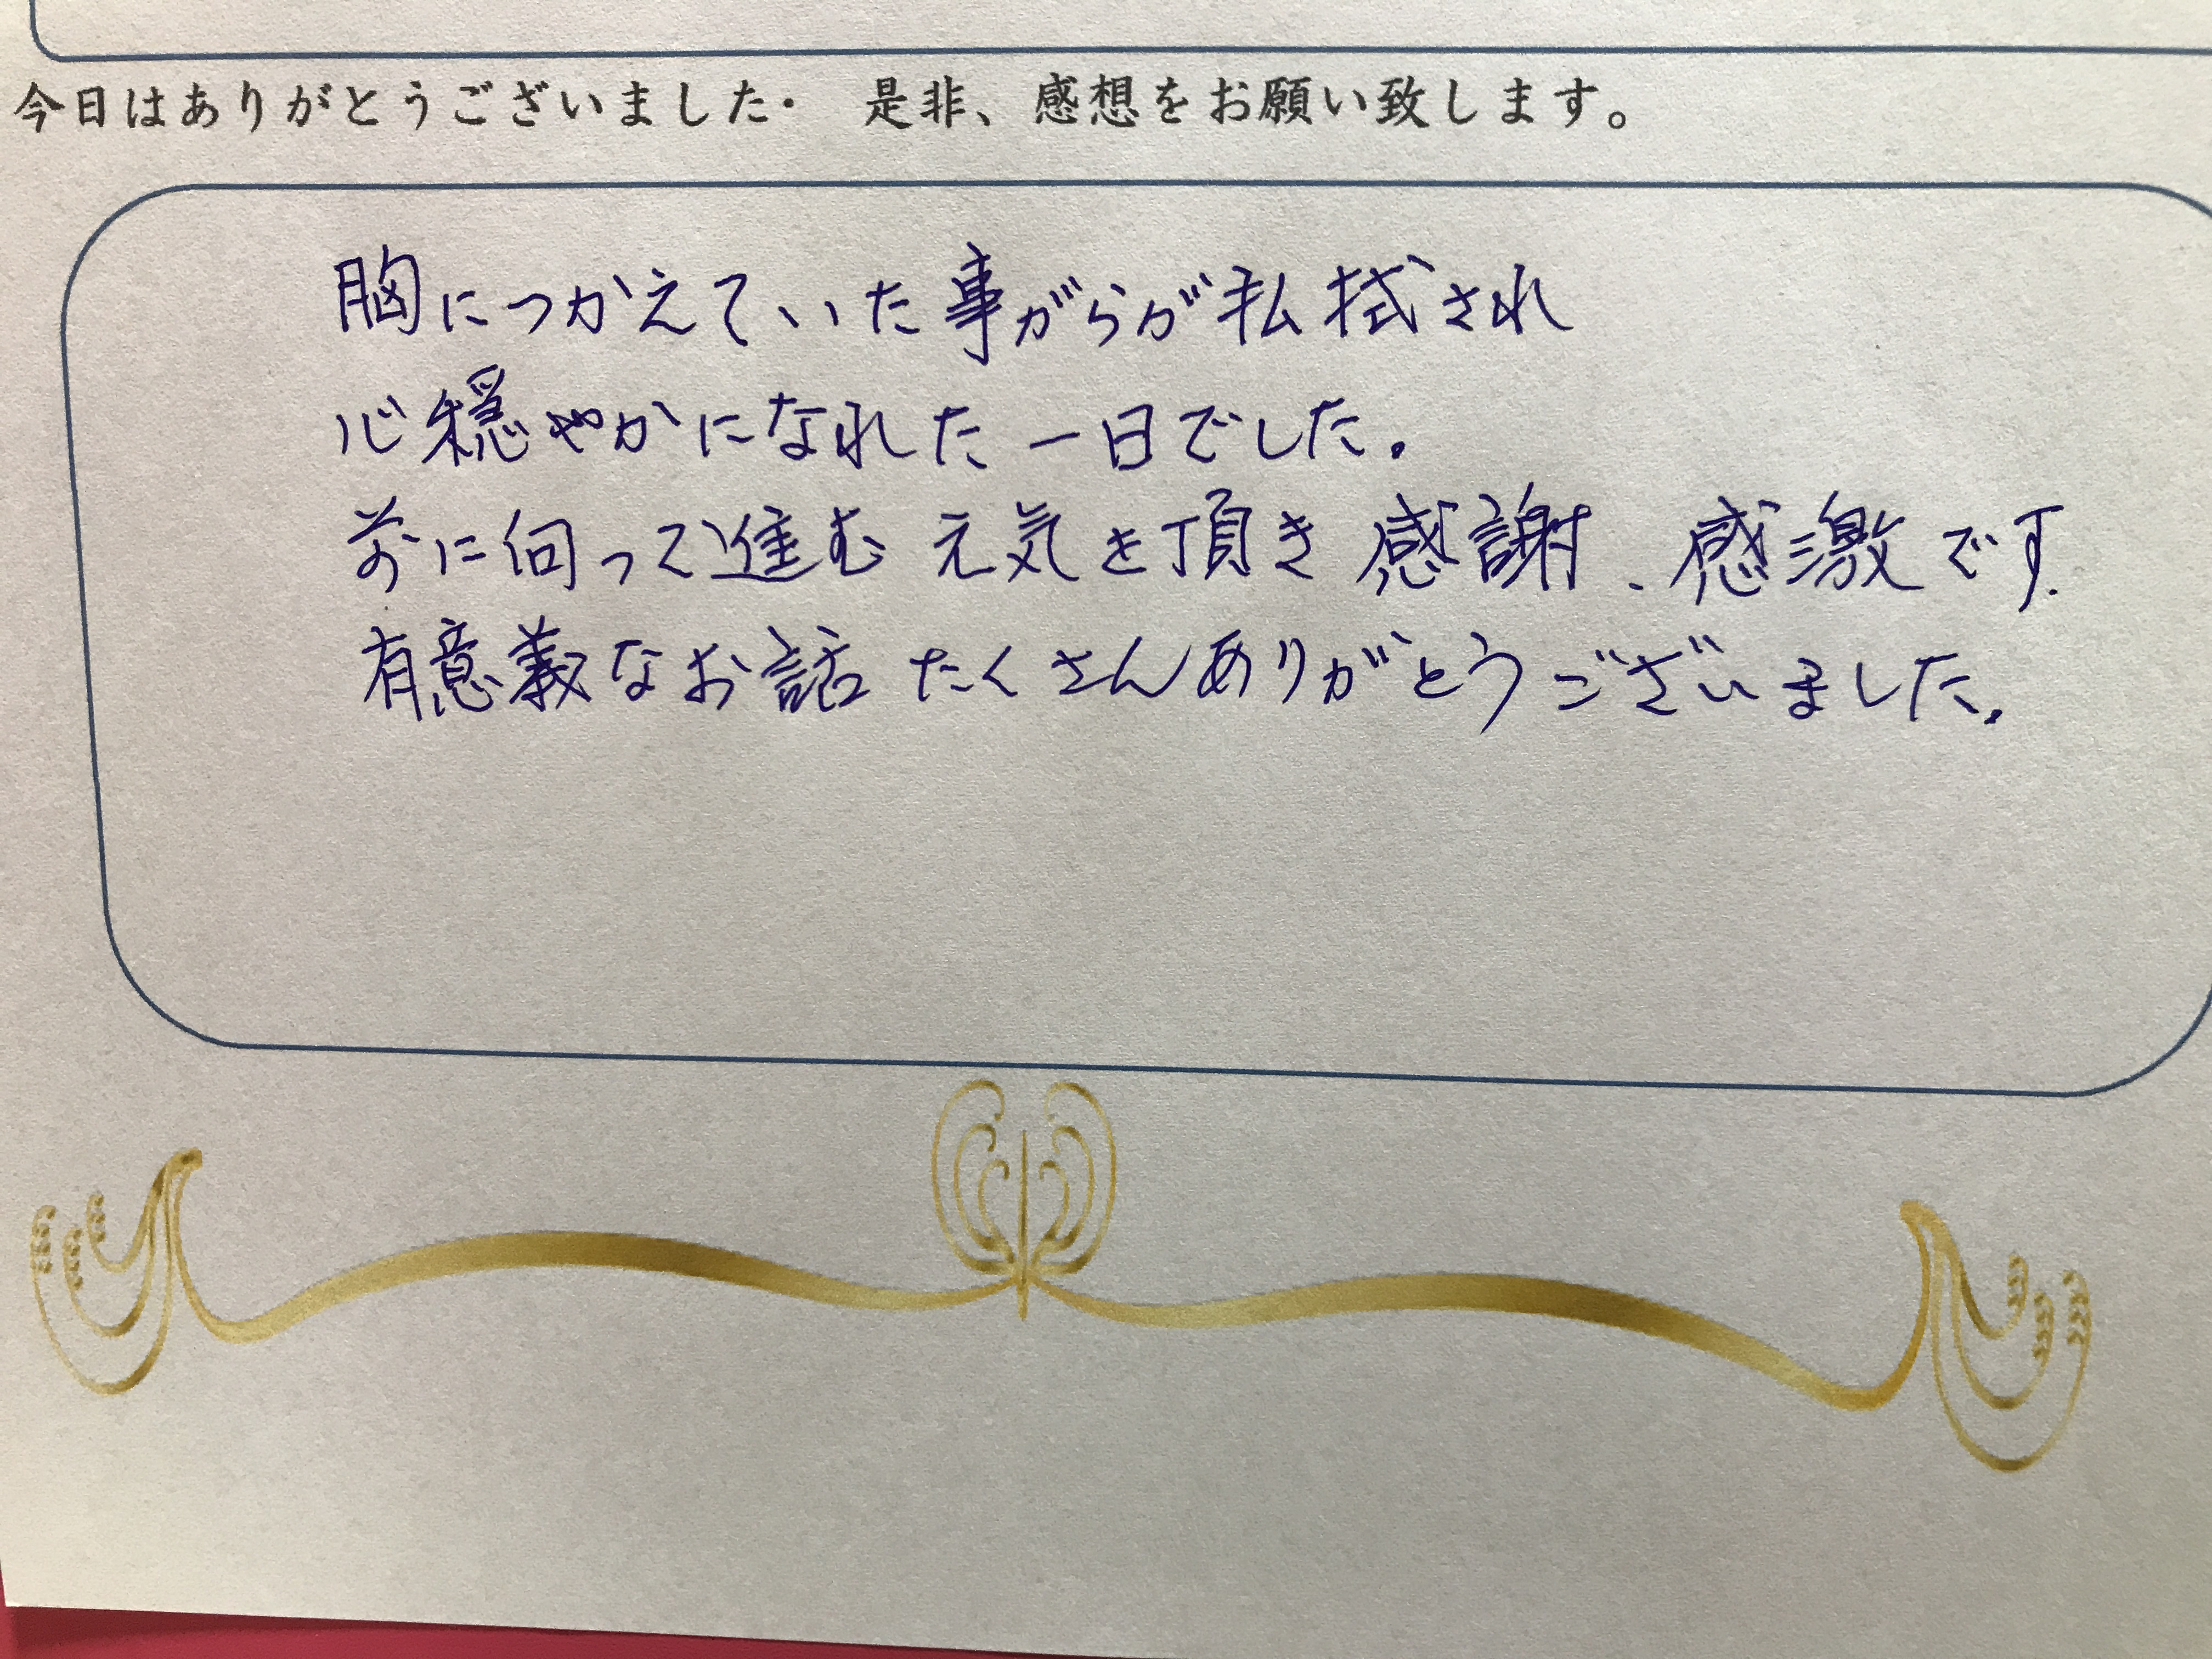 今日はありがとうございました・　是非、感想をお願い致します。
胸につかえていた事がらが払拭され
心穏やかになれた一日でした。
前に向って進む元気を頂き感謝、感激です.
有意義なお話たくさんありがとうございました。